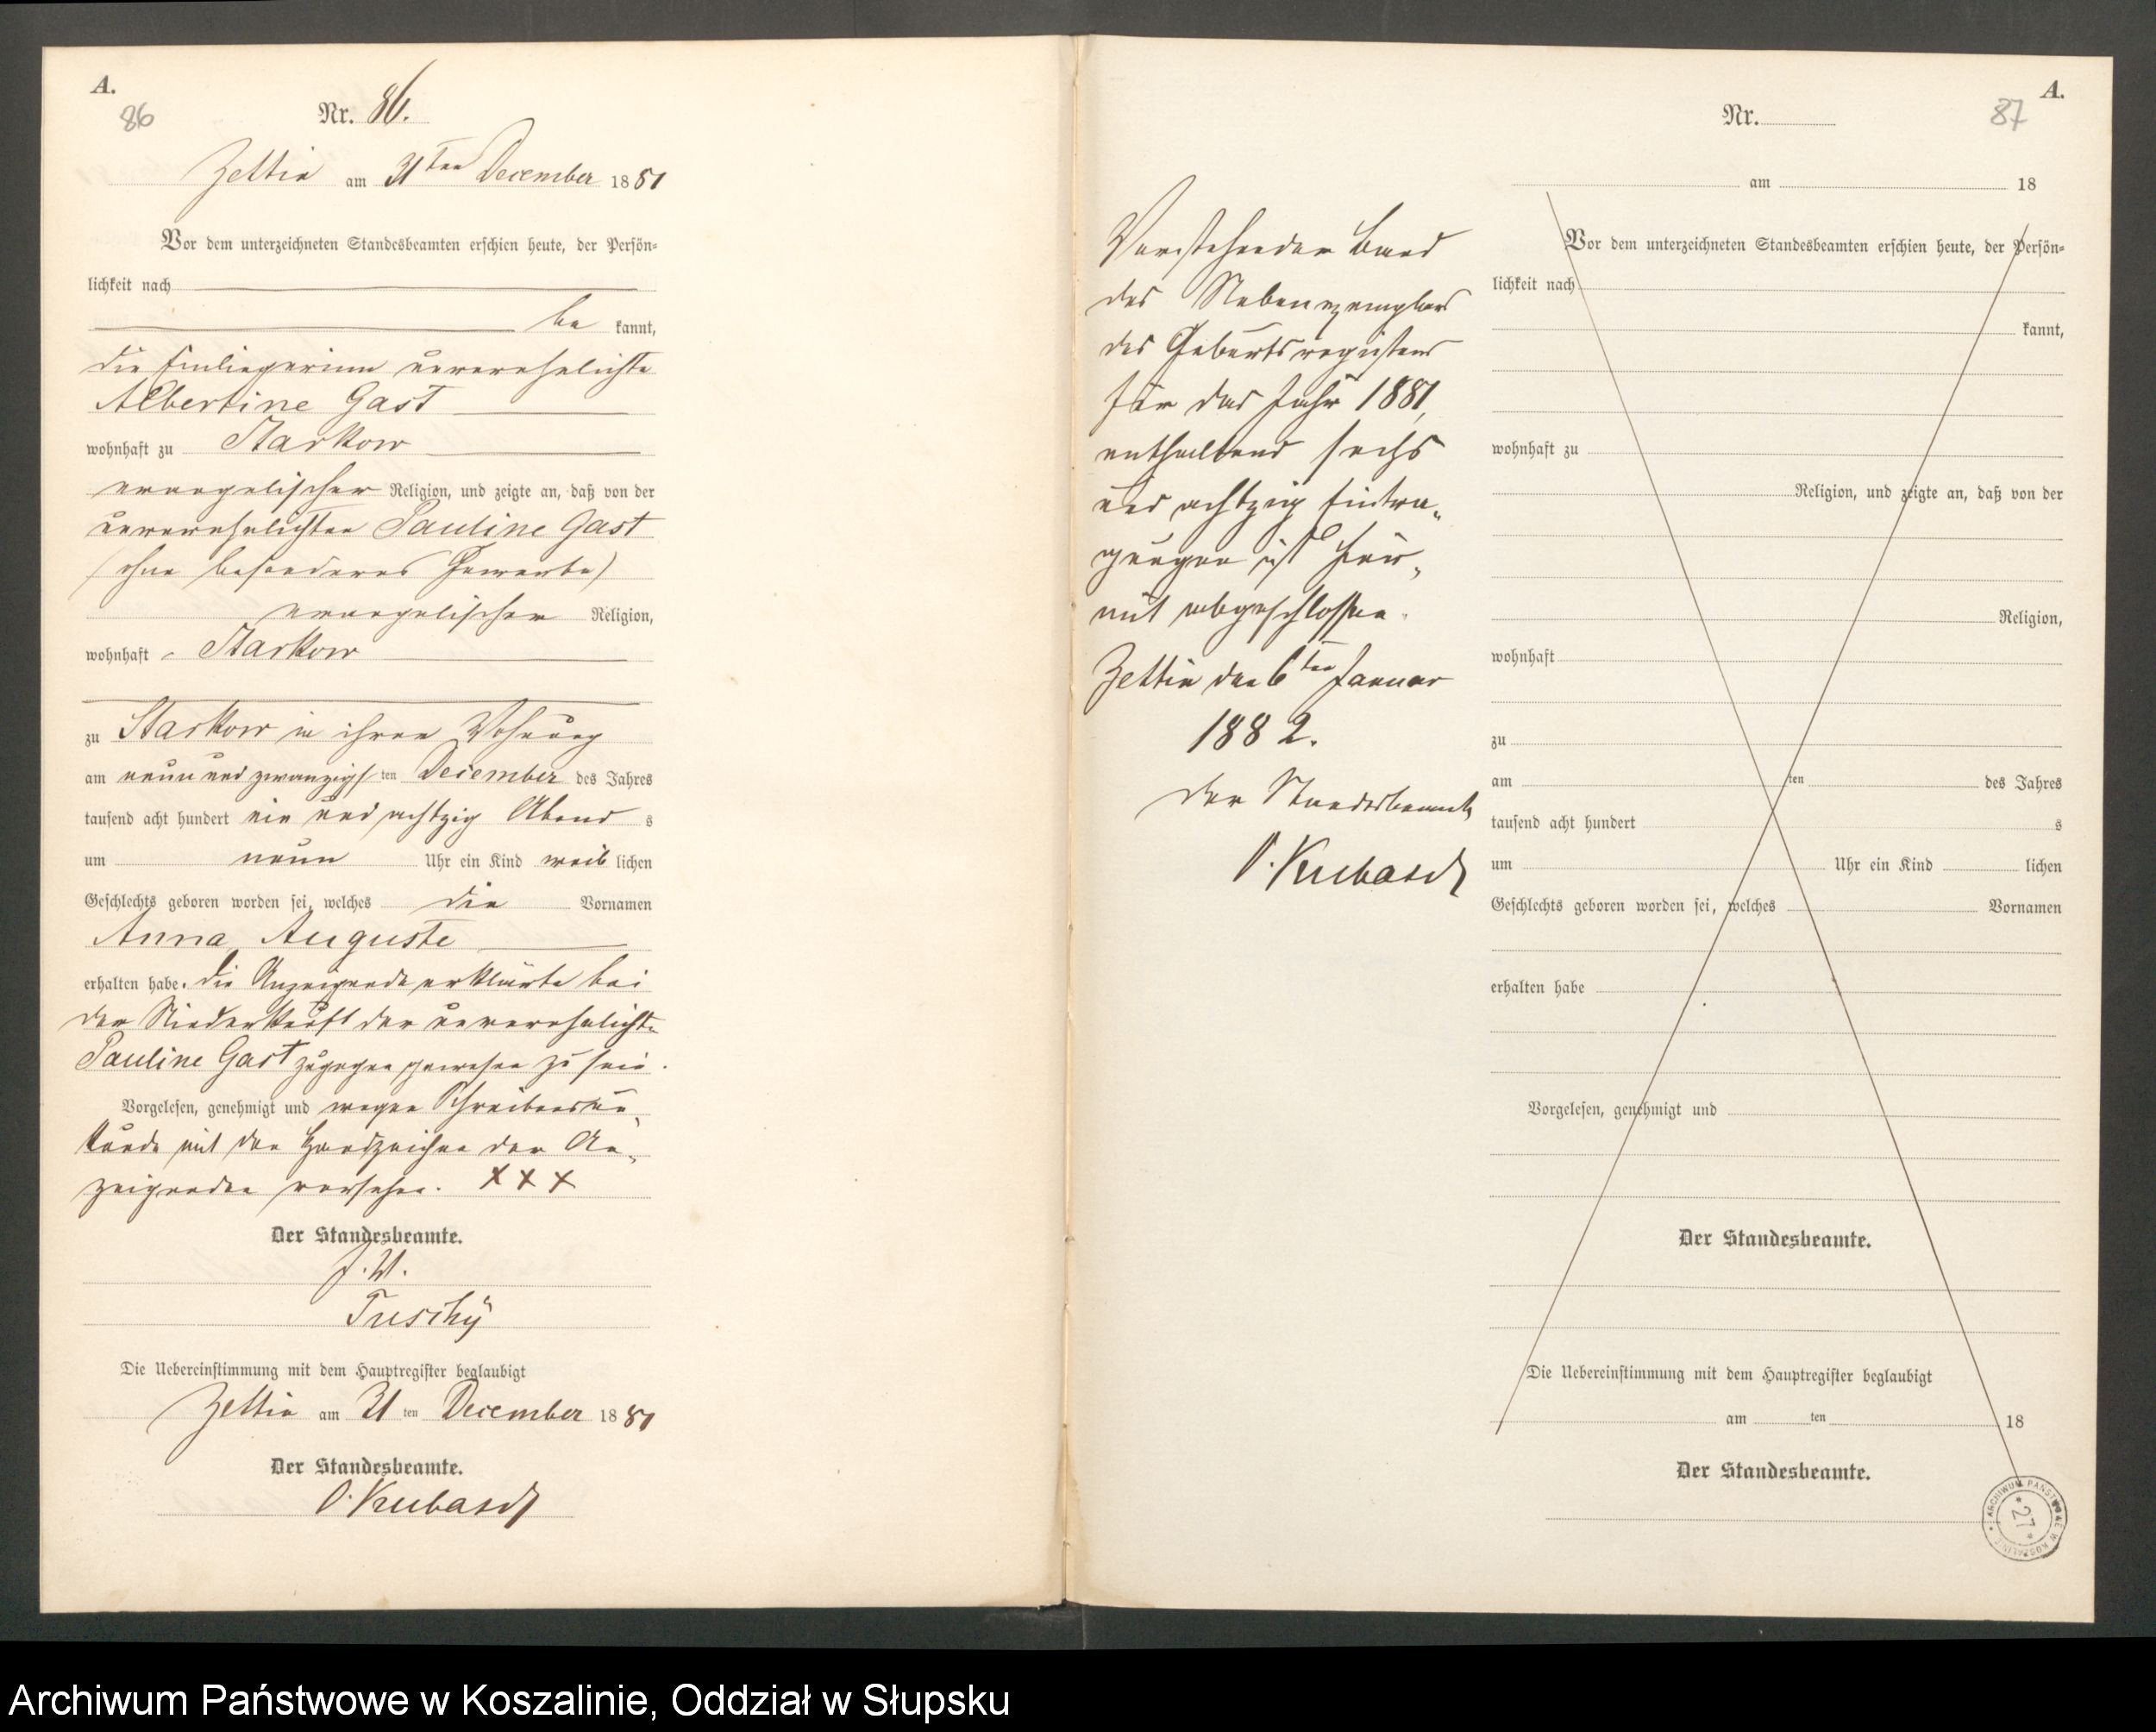 A.
86
Nr. 86.
Zettin am 31ten December 1881
Vor dem unterzeichneten Standesbeamten erschien heute, der Persön-
lichkeit nach
be kannt,
die Einliegerinn unverehelichte
Albertine Gast
wohnhaft zu Starkow
evangelischer Religion, und zeigte an, daß von der
unverehelichten Pauline Gast
(ohne besonderes Gewerbe)
evangelischer Religion,
wohnhaft Starkow
zu Starkow in ihrer Wohnung
am neun und zwanzigsten December des Jahres
tausend acht hundert ein und achtzig Abends
um neun Uhr ein Kind weiblichen
Geschlechts geboren worden sei, welches die Vornamen
Anna, Auguste
erhalten habe. Die Anzeigende erklärte bei
der Niederkunft der unverehelichten
Pauline Gast zugegen gewesen zu sein.
Vorgelesen, genehmigt und wegen Schreibensun-
kunde mit den Handzeichen der An-
zeigenden versehen. XXX
Der Standesbeamte.
J. V.
Die Uebereinstimmung mit dem Hauptregister beglaubigt
Zettin am 31ten December 1881
Der Standesbeamte.
O. Kubasch
Vorstehender Band
des Nebenexemplars
des Geburtsregisters
für das Jahr 1881,
enthaltend sechs
und achtzig Eintra-
gungen ist hier-
mit abgeschlossen.
Zettin den 6ten Januar
1882.
Der Standesbeamte
O. Kubasch
A.
87
Nr.
am 18
Vor dem unterzeichneten Standesbeamten erschien heute, der Persön-
lichkeit nach
kannt,
wohnhaft zu
Religion, und zeigte an, daß von der
Religion,
wohnhaft
zu
am ten des Jahres
tausend acht hundert s
um Uhr ein Kind lichen
Geschlechts geboren worden sei, welches Vornamen
erhalten habe
Vorgelesen, genehmigt und
Der Standesbeamte.
Die Uebereinstimmung mit dem Hauptregister beglaubigt
am ten 18
Der Standesbeamte.
ARCHIWUM PAŃSTWOWE W KOSZALINIE
*27*
Archiwum Państwowe w Koszalinie, Oddział w Słupsku